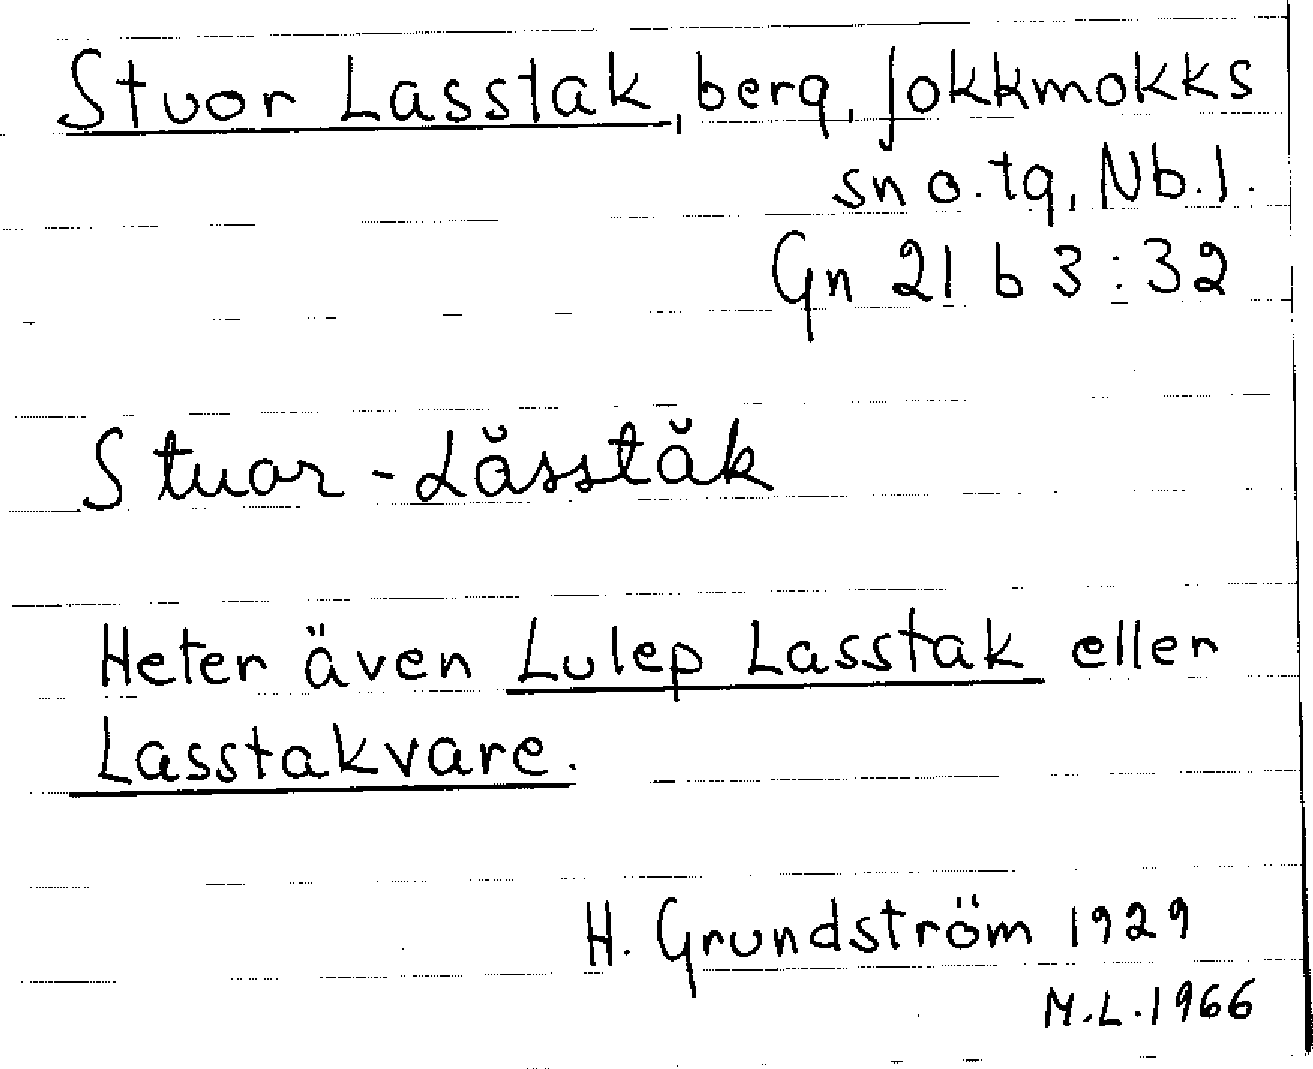 Stuor Lasstak, berg, Jokkmokks
sn o. tg, Nb. l.
Gn 21 b 3:32
Stuor-Lăsstăk
Heter även Lulep Lasstak eller
Lasstakvare.
H. Grundström 1929
M.L. 1966